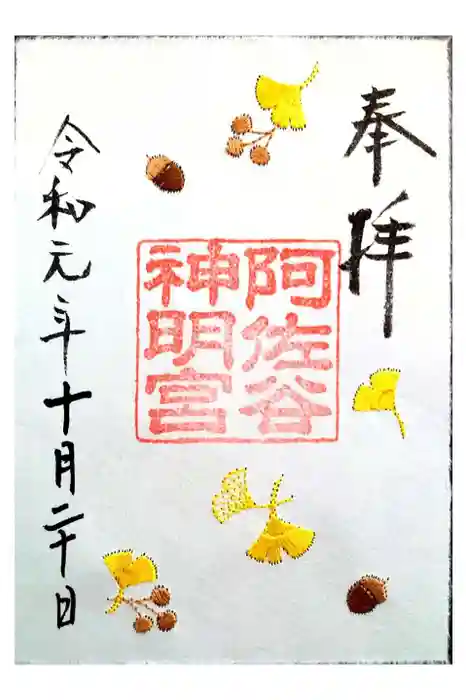 奉拝
阿佐谷
神明宮
令和元年十月二十日